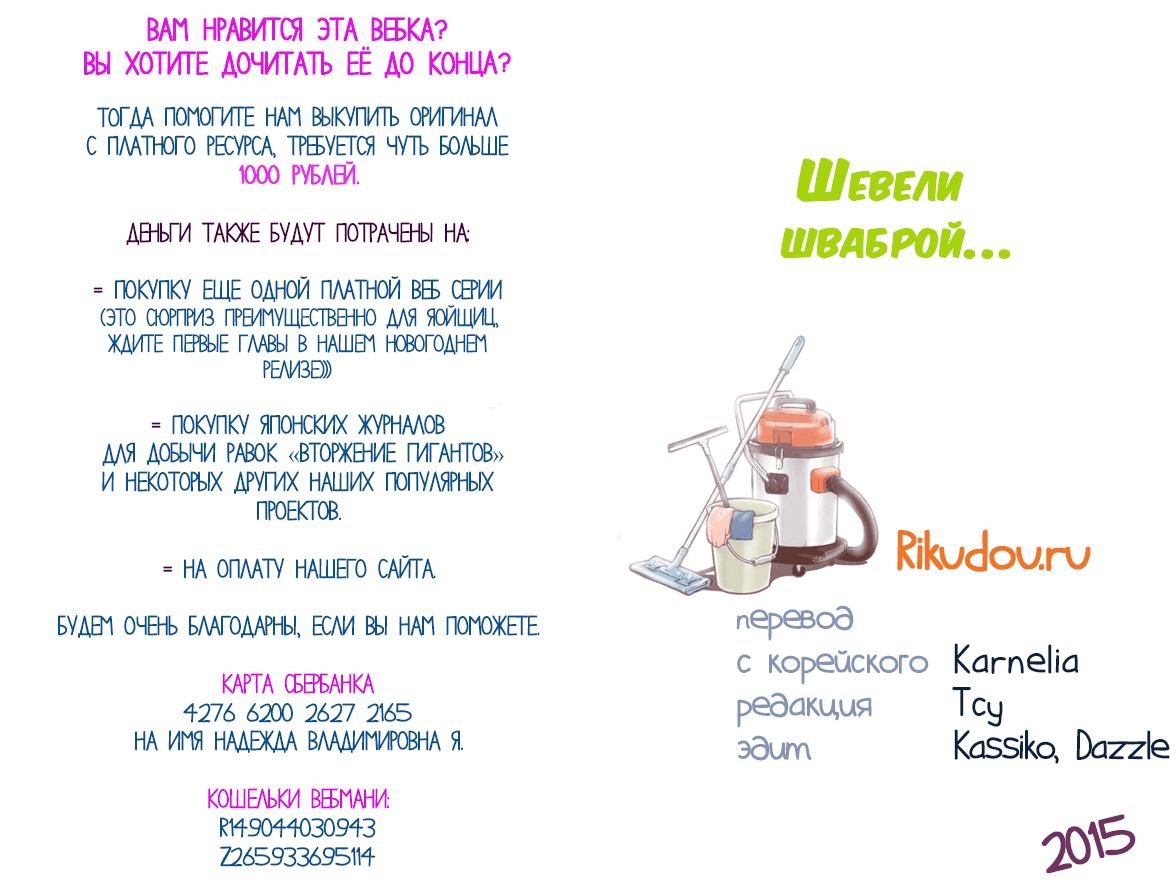 ВАМ НРАВИТСЯ ЭТА ВЕБКА?
ВЫ ХОТИТЕ ДОЧИТАТЬ ЕЁ ДО КОНЦА?
ТОГДА ПОМОГИТЕ НАМ ВЫКУПИТЬ ОРИГИНАЛ
С ПЛАТНОГО РЕСУРСА, ТРЕБУЕТСЯ ЧУТЬ БОЛЬШЕ
1000 РУБЛЕЙ.
ДЕНЬГИ ТАКЖЕ БУДУТ ПОТРАЧЕНЫ НА:
= ПОКУПКУ ЕЩЕ ОДНОЙ ПЛАТНОЙ ВЕБ СЕРИИ
(ЭТО СЮРПРИЗ ПРЕИМУЩЕСТВЕННО ДЛЯ ЯОЙЩИЦ,
ЖДИТЕ ПЕРВЫЕ ГЛАВЫ В НАШЕМ НОВОГОДНЕМ
РЕЛИЗЕ)))
= ПОКУПКУ ЯПОНСКИХ ЖУРНАЛОВ
ДЛЯ ДОБЫЧИ РАВОК «ВТОРЖЕНИЕ ГИГАНТОВ»
И НЕКОТОРЫХ ДРУГИХ НАШИХ ПОПУЛЯРНЫХ
ПРОЕКТОВ.
= НА ОПЛАТУ НАШЕГО САЙТА.
БУДЕМ ОЧЕНЬ БЛАГОДАРНЫ, ЕСЛИ ВЫ НАМ ПОМОЖЕТЕ.
КАРТА СБЕРБАНКА
4276 6200 2627 2165
НА ИМЯ НАДЕЖДА ВЛАДИМИРОВНА Я.
КОШЕЛЬКИ ВЕБМАНИ:
R149044030943
Z265933695114
ШЕВЕЛИ
ШВАБРОЙ...
Rikudou.ru
перевод
с корейского Karnelia
редакция Тсу
эдит Kassiko, Dazzle
2015